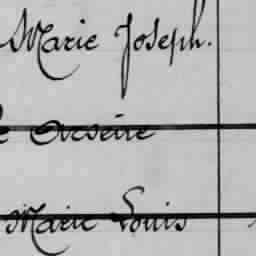 Marie Joseph.
Arsène
Marie Louis